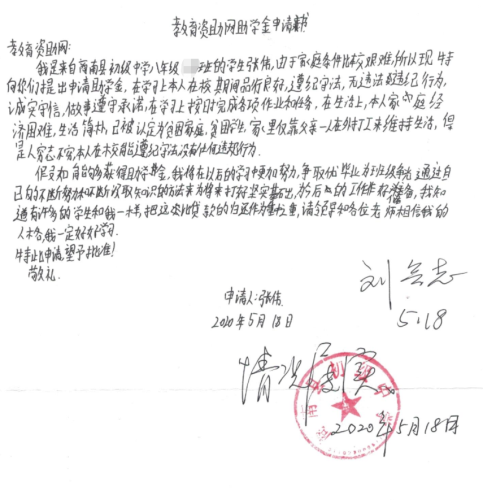 教育资助网助学金申请书
教育资助网:
我是来自商南县初级中学八年级 班的学生张伟,由于家庭条件比较艰难,所以现特
向你们提出申请助学金,在学习上本人在校期间品行良好,遵纪守法,无违法违纪行为,
诚实守信,做事遵守承诺,在学习上按时完成各项作业和任务,在生活上,本人家 庭经
济困难,生活简朴,已被认定为贫困家庭,贫困学生,家里仅靠父亲一人在外打工来维持生活,但
是人穷志不穷本人在校能遵纪守法,没有任何违规行为.
假如有 能够获得助学金,我将在以后的学习中更加努力,争取 毕业为班级争光,通过自
己的不断努力和不断汲取知识的 来为将来打好坚实基础,为后 的工作做好准备,我知
道有许多的学生和我一样,把这次 款的归还作为 ,请领导和各位老师相信我的
人格,我一定好好学习.
特此申请望予批准!
敬礼
申请人:张伟
2020年5月18日
刘 志
5.18
情况属实
2020年5月18日